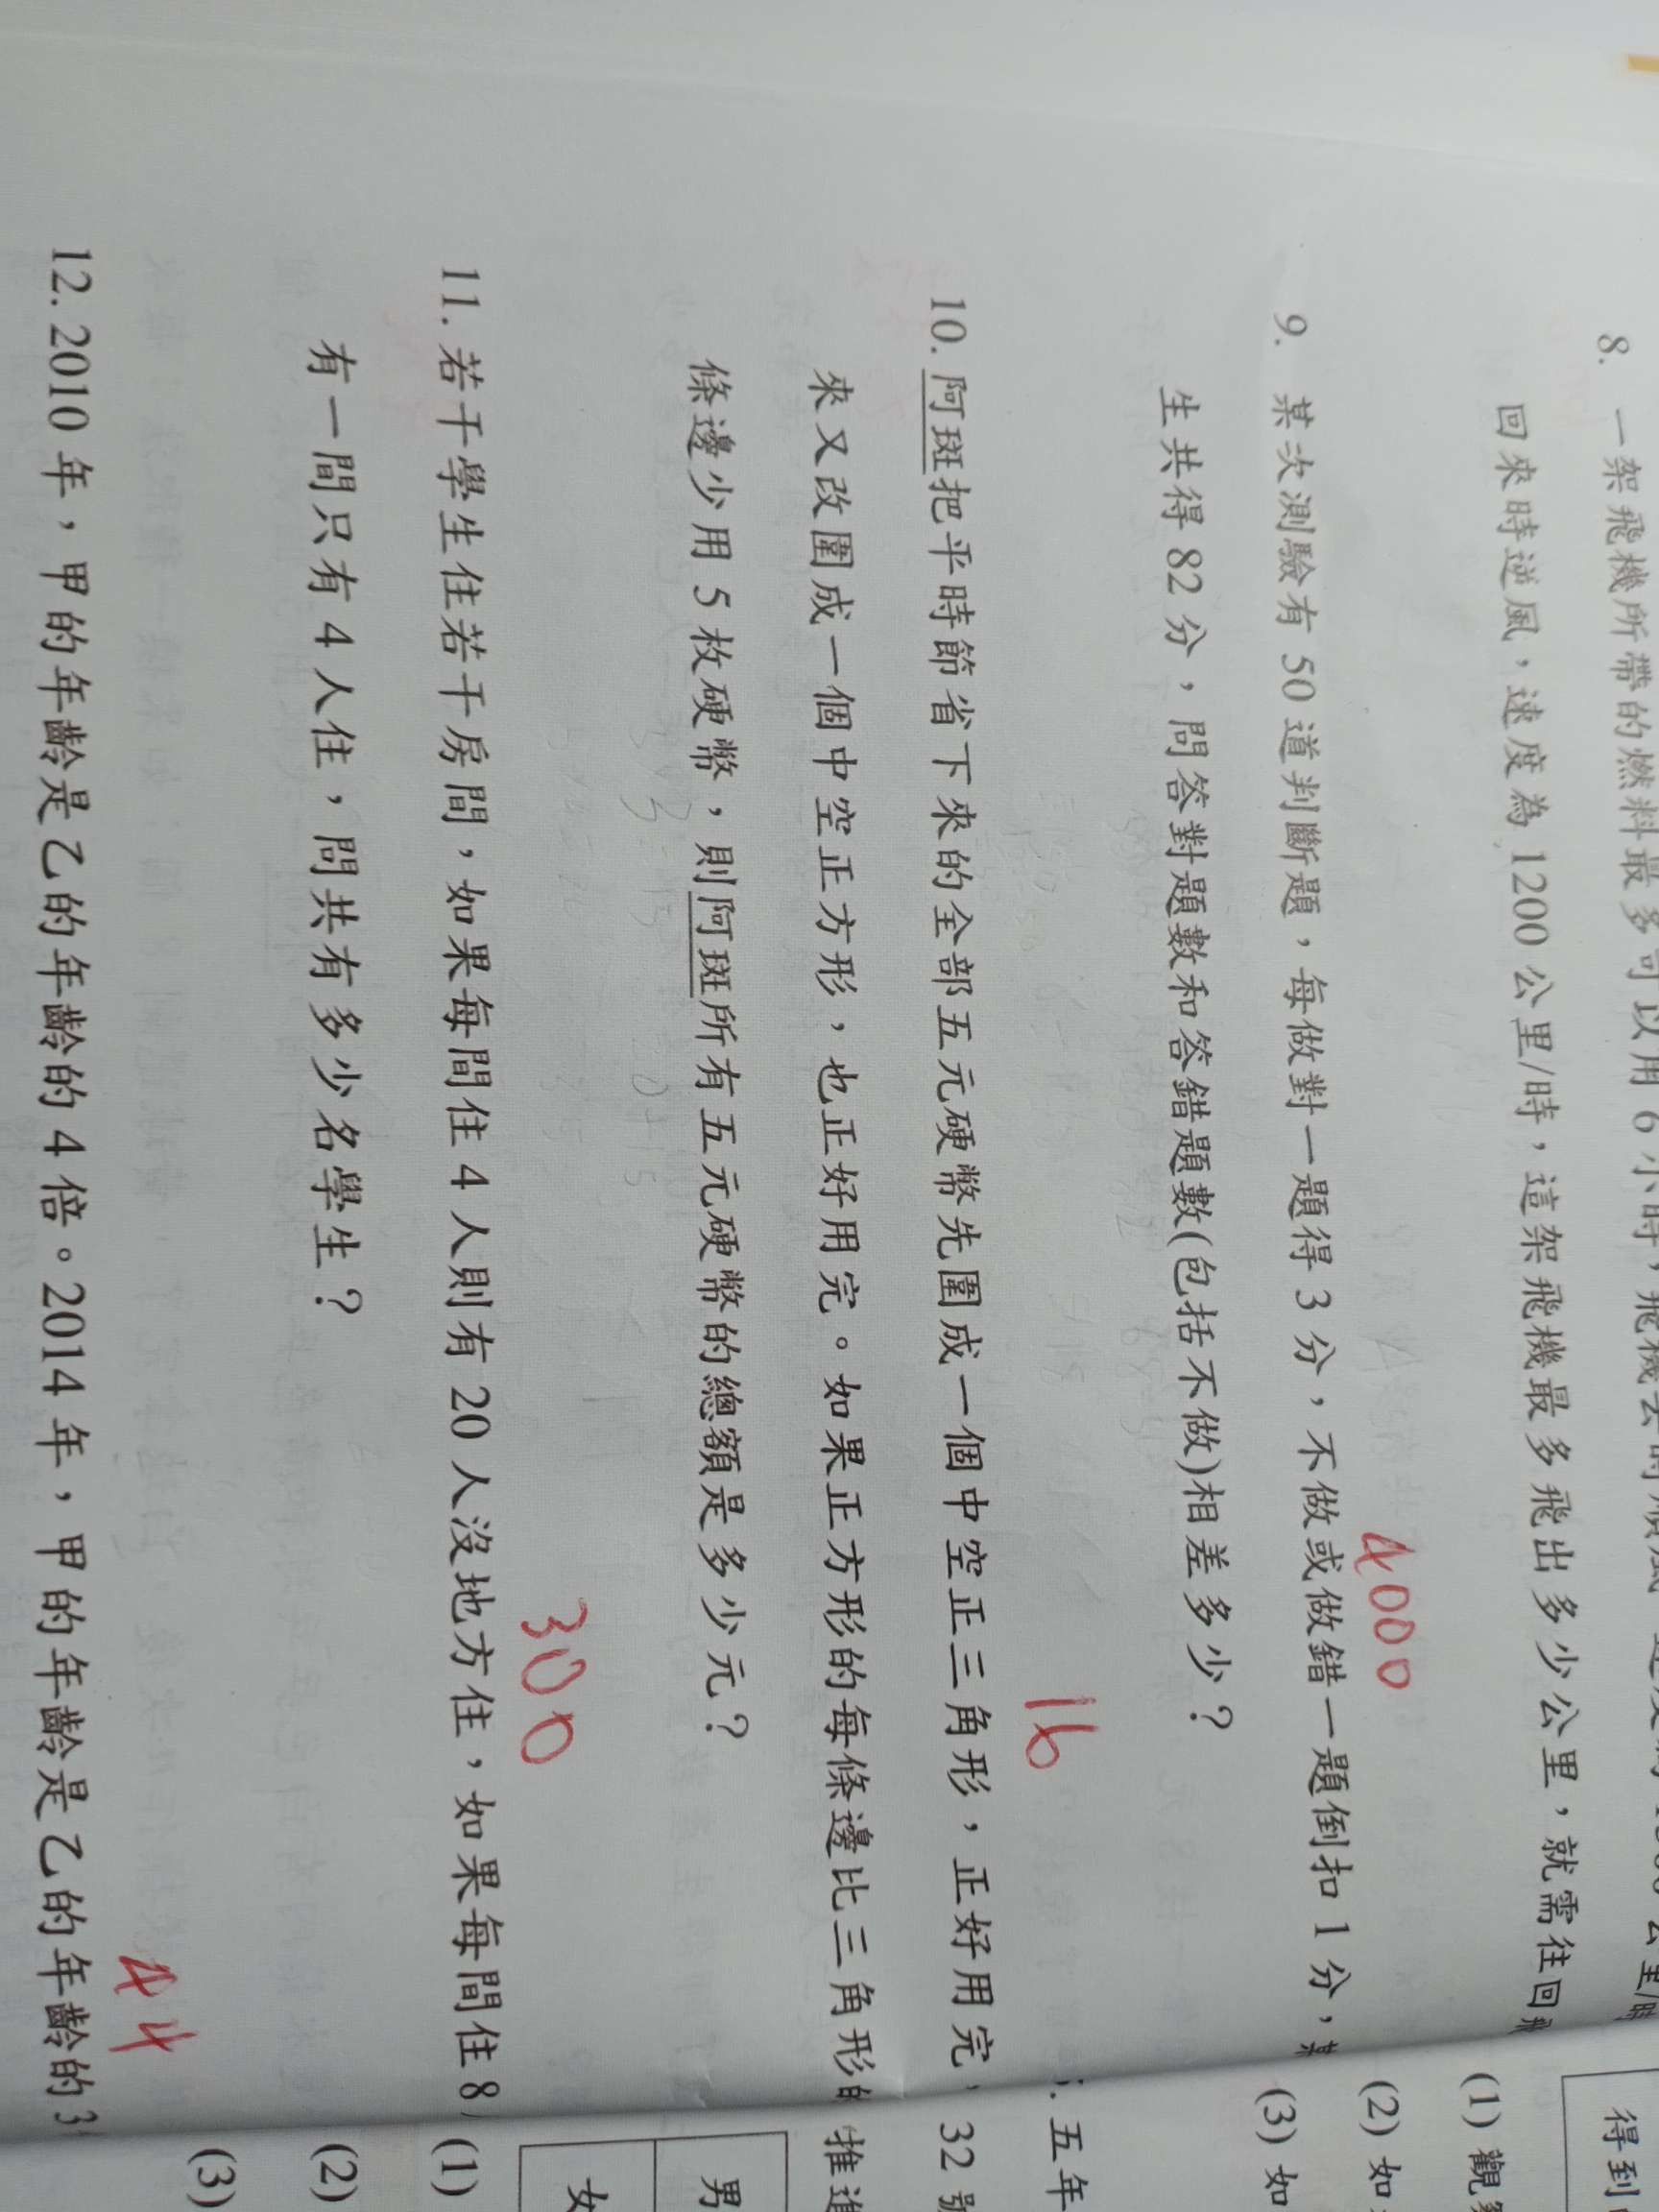 8. 一架飛機所帶的燃料最多可以用 6 小時，飛機去時順風
回來時逆風，速度為 1200 公里/時，這架飛機最多飛出多少公里，就需往回
4000
9. 某次測驗有 50 道判斷題，每做對一題得 3 分，不做或做錯一題倒扣 1 分，某
生共得 82 分，問答對題數和答錯題數(包括不做)相差多少？
16
10. 阿斑把平時節省下來的全部五元硬幣先圍成一個中空正三角形，正好用完，
來又改圍成一個中空正方形，也正好用完。如果正方形的每條邊比三角形的
條邊少用 5 枚硬幣，則阿斑所有五元硬幣的總額是多少元？
300
11. 若干學生住若干房間，如果每間住 4 人則有 20 人沒地方住，如果每間住 8
有一間只有 4 人住，問共有多少名學生？
44
12. 2010 年，甲的年齡是乙的年齡的 4 倍。2014 年，甲的年齡是乙的年齡的 3
得到
(1) 觀
(2) 如
(3) 如
五年
32 號
推進
男
女
(1)
(2)
(3)